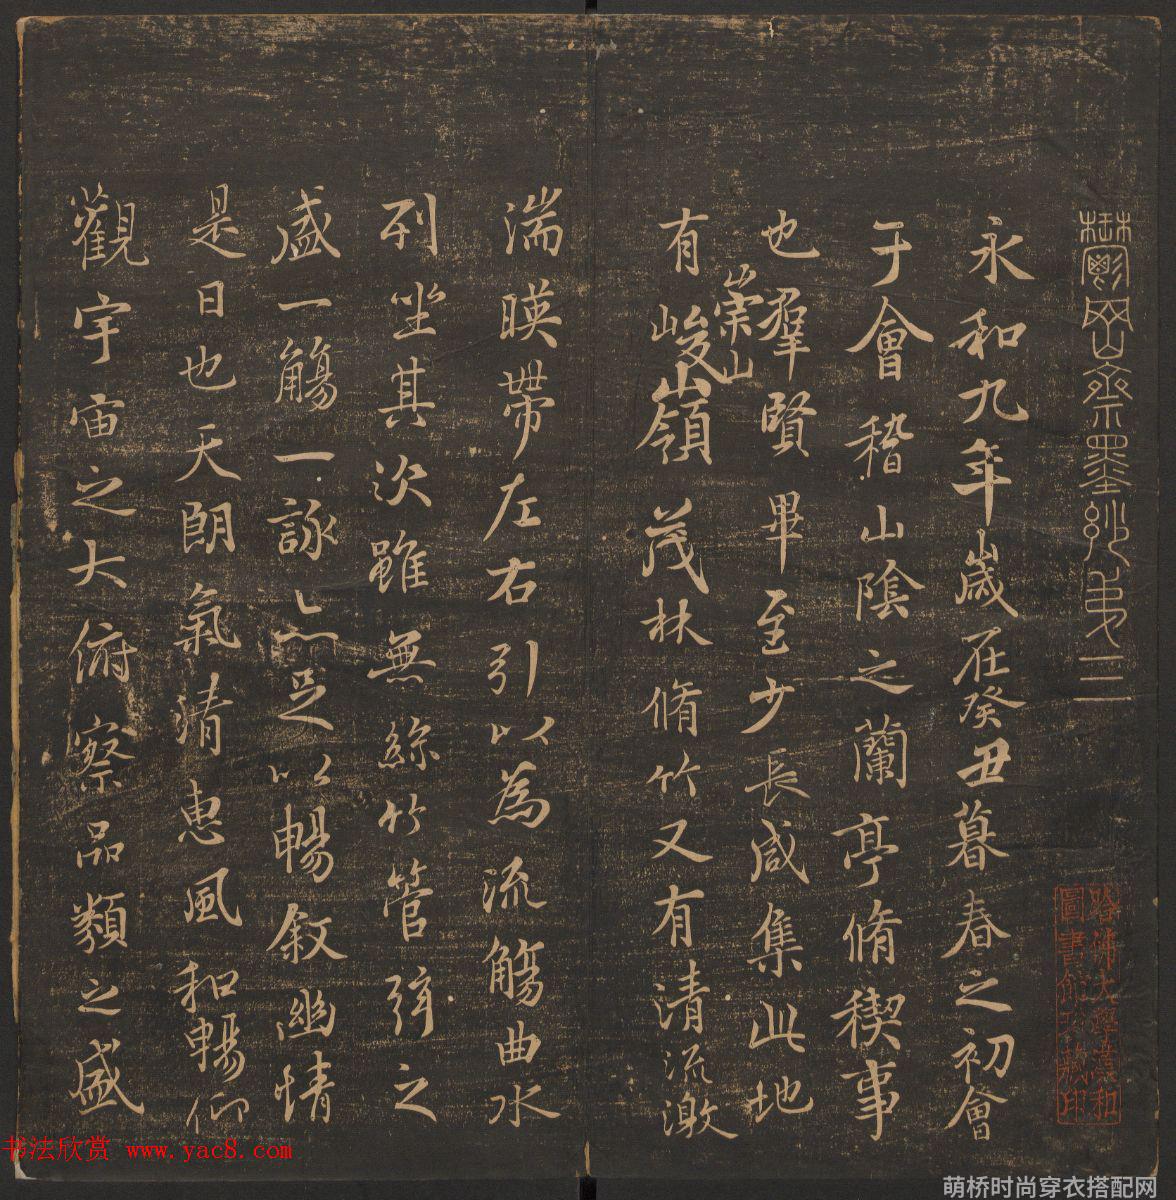 鬱岡齋墨妙弟三
永和九年歲在癸丑暮春之初會
于會稽山陰之蘭亭脩稧事
也羣賢畢至少長咸集此地
有崇山峻嶺茂林脩竹又有清流激
湍暎帶左右引以為流觴曲水
列坐其次雖無絲竹管弦之
盛一觴一詠亦足以暢敘幽情
是日也天朗氣清惠風和暢仰
觀宇宙之大俯察品類之盛
哈佛大學漢和
圖書館珍藏印
书法欣赏 www.yac8.com
萌桥时尚穿衣搭配网